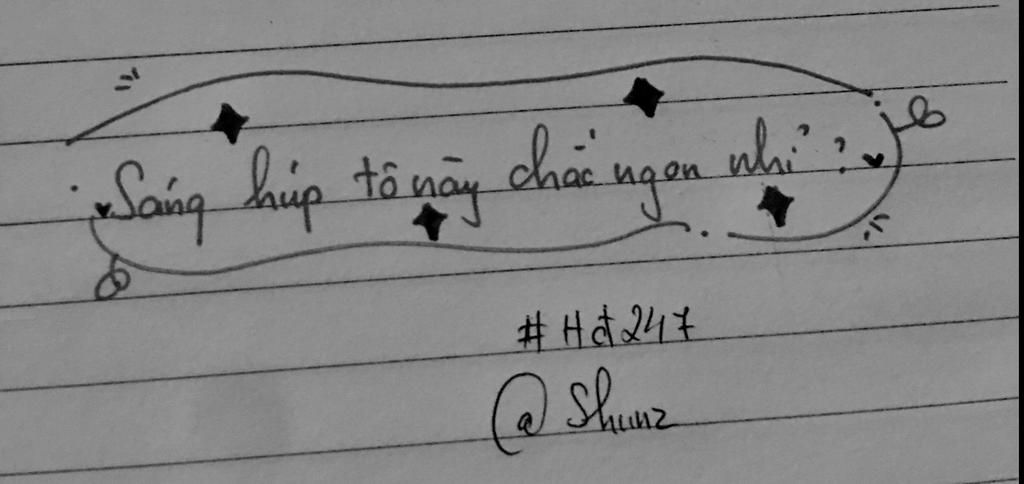 Sáng húp tô này chắc ngon nhỉ?
# Hđ247
@Shunz